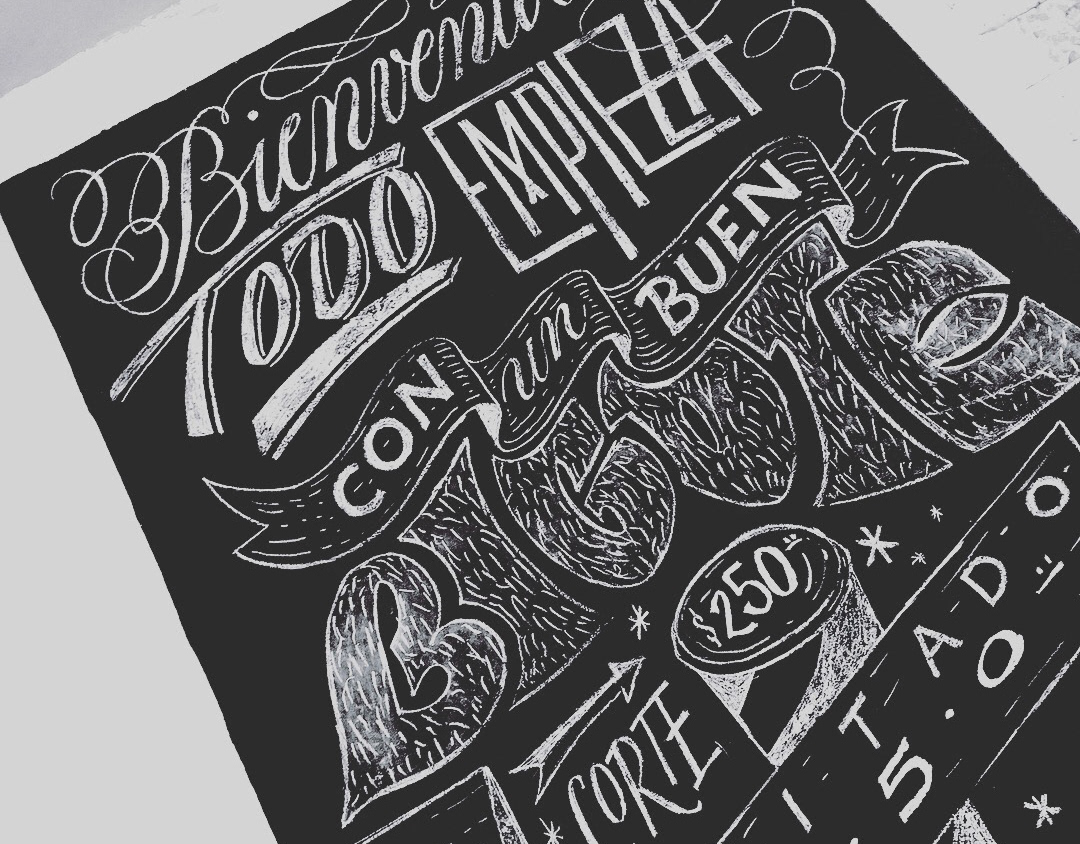 Bienveni
TODO EMPIEZA
CON un BUEN
BIGOTE
250
CORTE
ITADO
5.0